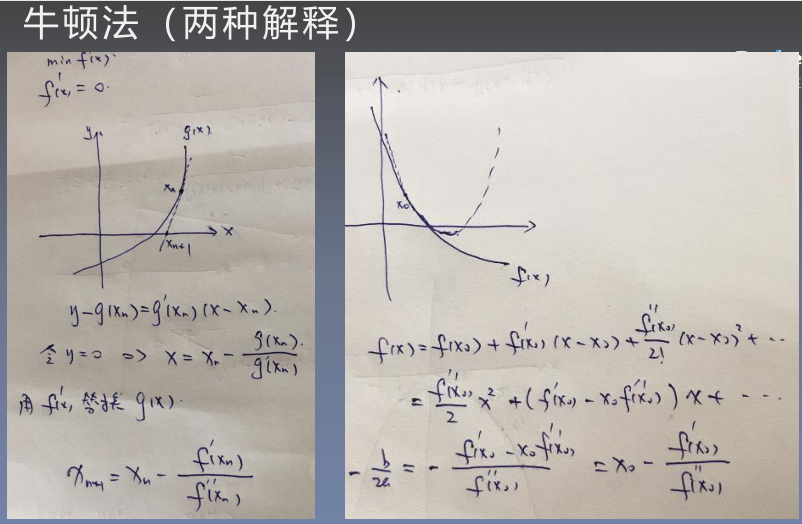 牛顿法（两种解释）
min f(x)
f'(x) = 0.
y
g(x)
xₙ
xₙ₊₁
x
y-g(xₙ)=g'(xₙ)(x-xₙ).
令 y=0 => x = xₙ - g(xₙ)/g'(xₙ)
用 f'(x) 替 g(x).
xₙ₊₁ = xₙ - f'(xₙ)/f''(xₙ)
x₀
f(x)
f(x) = f(x₀) + f'(x₀)(x-x₀) + f''(x₀)/2! (x-x₀)² + ...
= f''(x₀)/2 x² + (f'(x₀) - x₀f''(x₀)) x + ...
-b/2a = - f'(x₀) - x₀f''(x₀)/f''(x₀) = x₀ - f'(x₀)/f''(x₀)